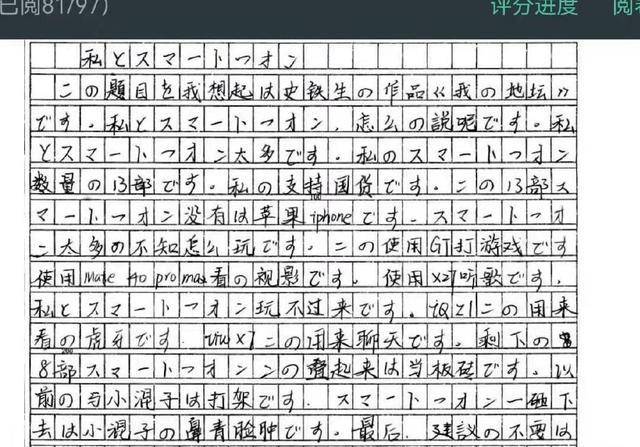 已阅81/97)
评分进度
阅卷
私とスマートフオン
この題目を我想起は史铁生の作品《我の地坛》
です。私とスマートフオン，怎么の説呢です。私
とスマートフオン太多です。私のスマートフオン
数量の13部です。私の支持国货です。この13部ス
マートフオン没有は苹果iphoneです。スマートフオ
ン太多の不知怎么玩です。この使用GT打游戏です
使用mate 40 pro max看の视影です。使用X27听歌です，
私とスマートフオン玩不过来です。iQ21この用来
看の虎牙です。vivoX7この用来聊天です。剩下の
8部スマートフオンの叠起来は当板砖です。以
前の与小混子は打架です。スマートフオン一砸下
去は小混子の鼻青脸肿です。最后，建议の不要は